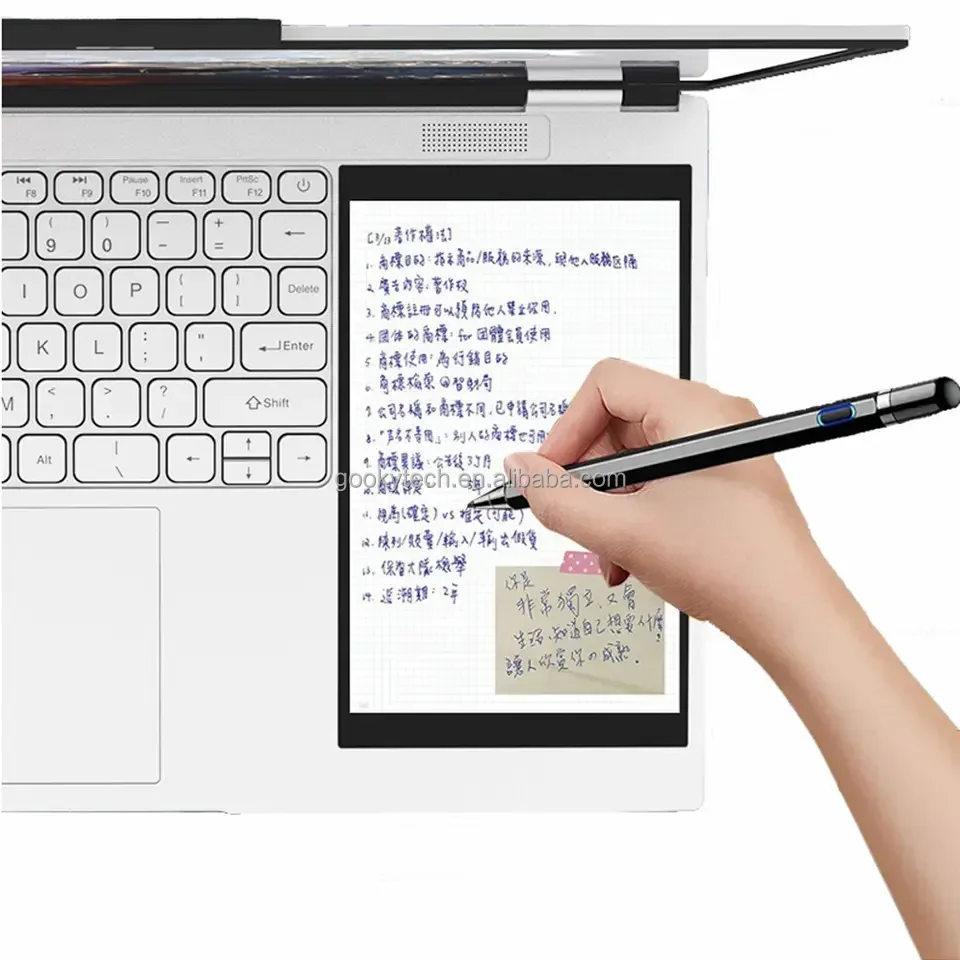 F8 F9 Pause F10 Insert F11 PrtSc F12
( 9 ) 0 — - + =
I O P { [ } ] Delete
K L : ; " , Enter
M < , > . ? / Shift
Alt | \
[3/13 著作權法]
1. 商標目的：指示商品/服務的來源，與他人服務區隔
2. 廣告內容：著作权
3. 商標註冊可以預防他人禁止使用.
4. 团体的商標：for 团體会員使用
5. 商標使用：為行銷目的
6. 商標檢索@智財局
7. 公司名稱和商標不同，已申請公司名稱
8. 「著名不專用」：別人的商標也可用
9. 商標異議：公告後3个月
10. 商標評定
11. 視為(確定) vs 推定(可能)
12. 陳列/販賣/輸入/輸出假貨
13. 保智大隊 檢舉
14. 追溯期：2年
你是
非常獨立、又會
生活、知道自己想要什麼
讓人欣賞你の成熟.
gookytech.en.alibaba.com